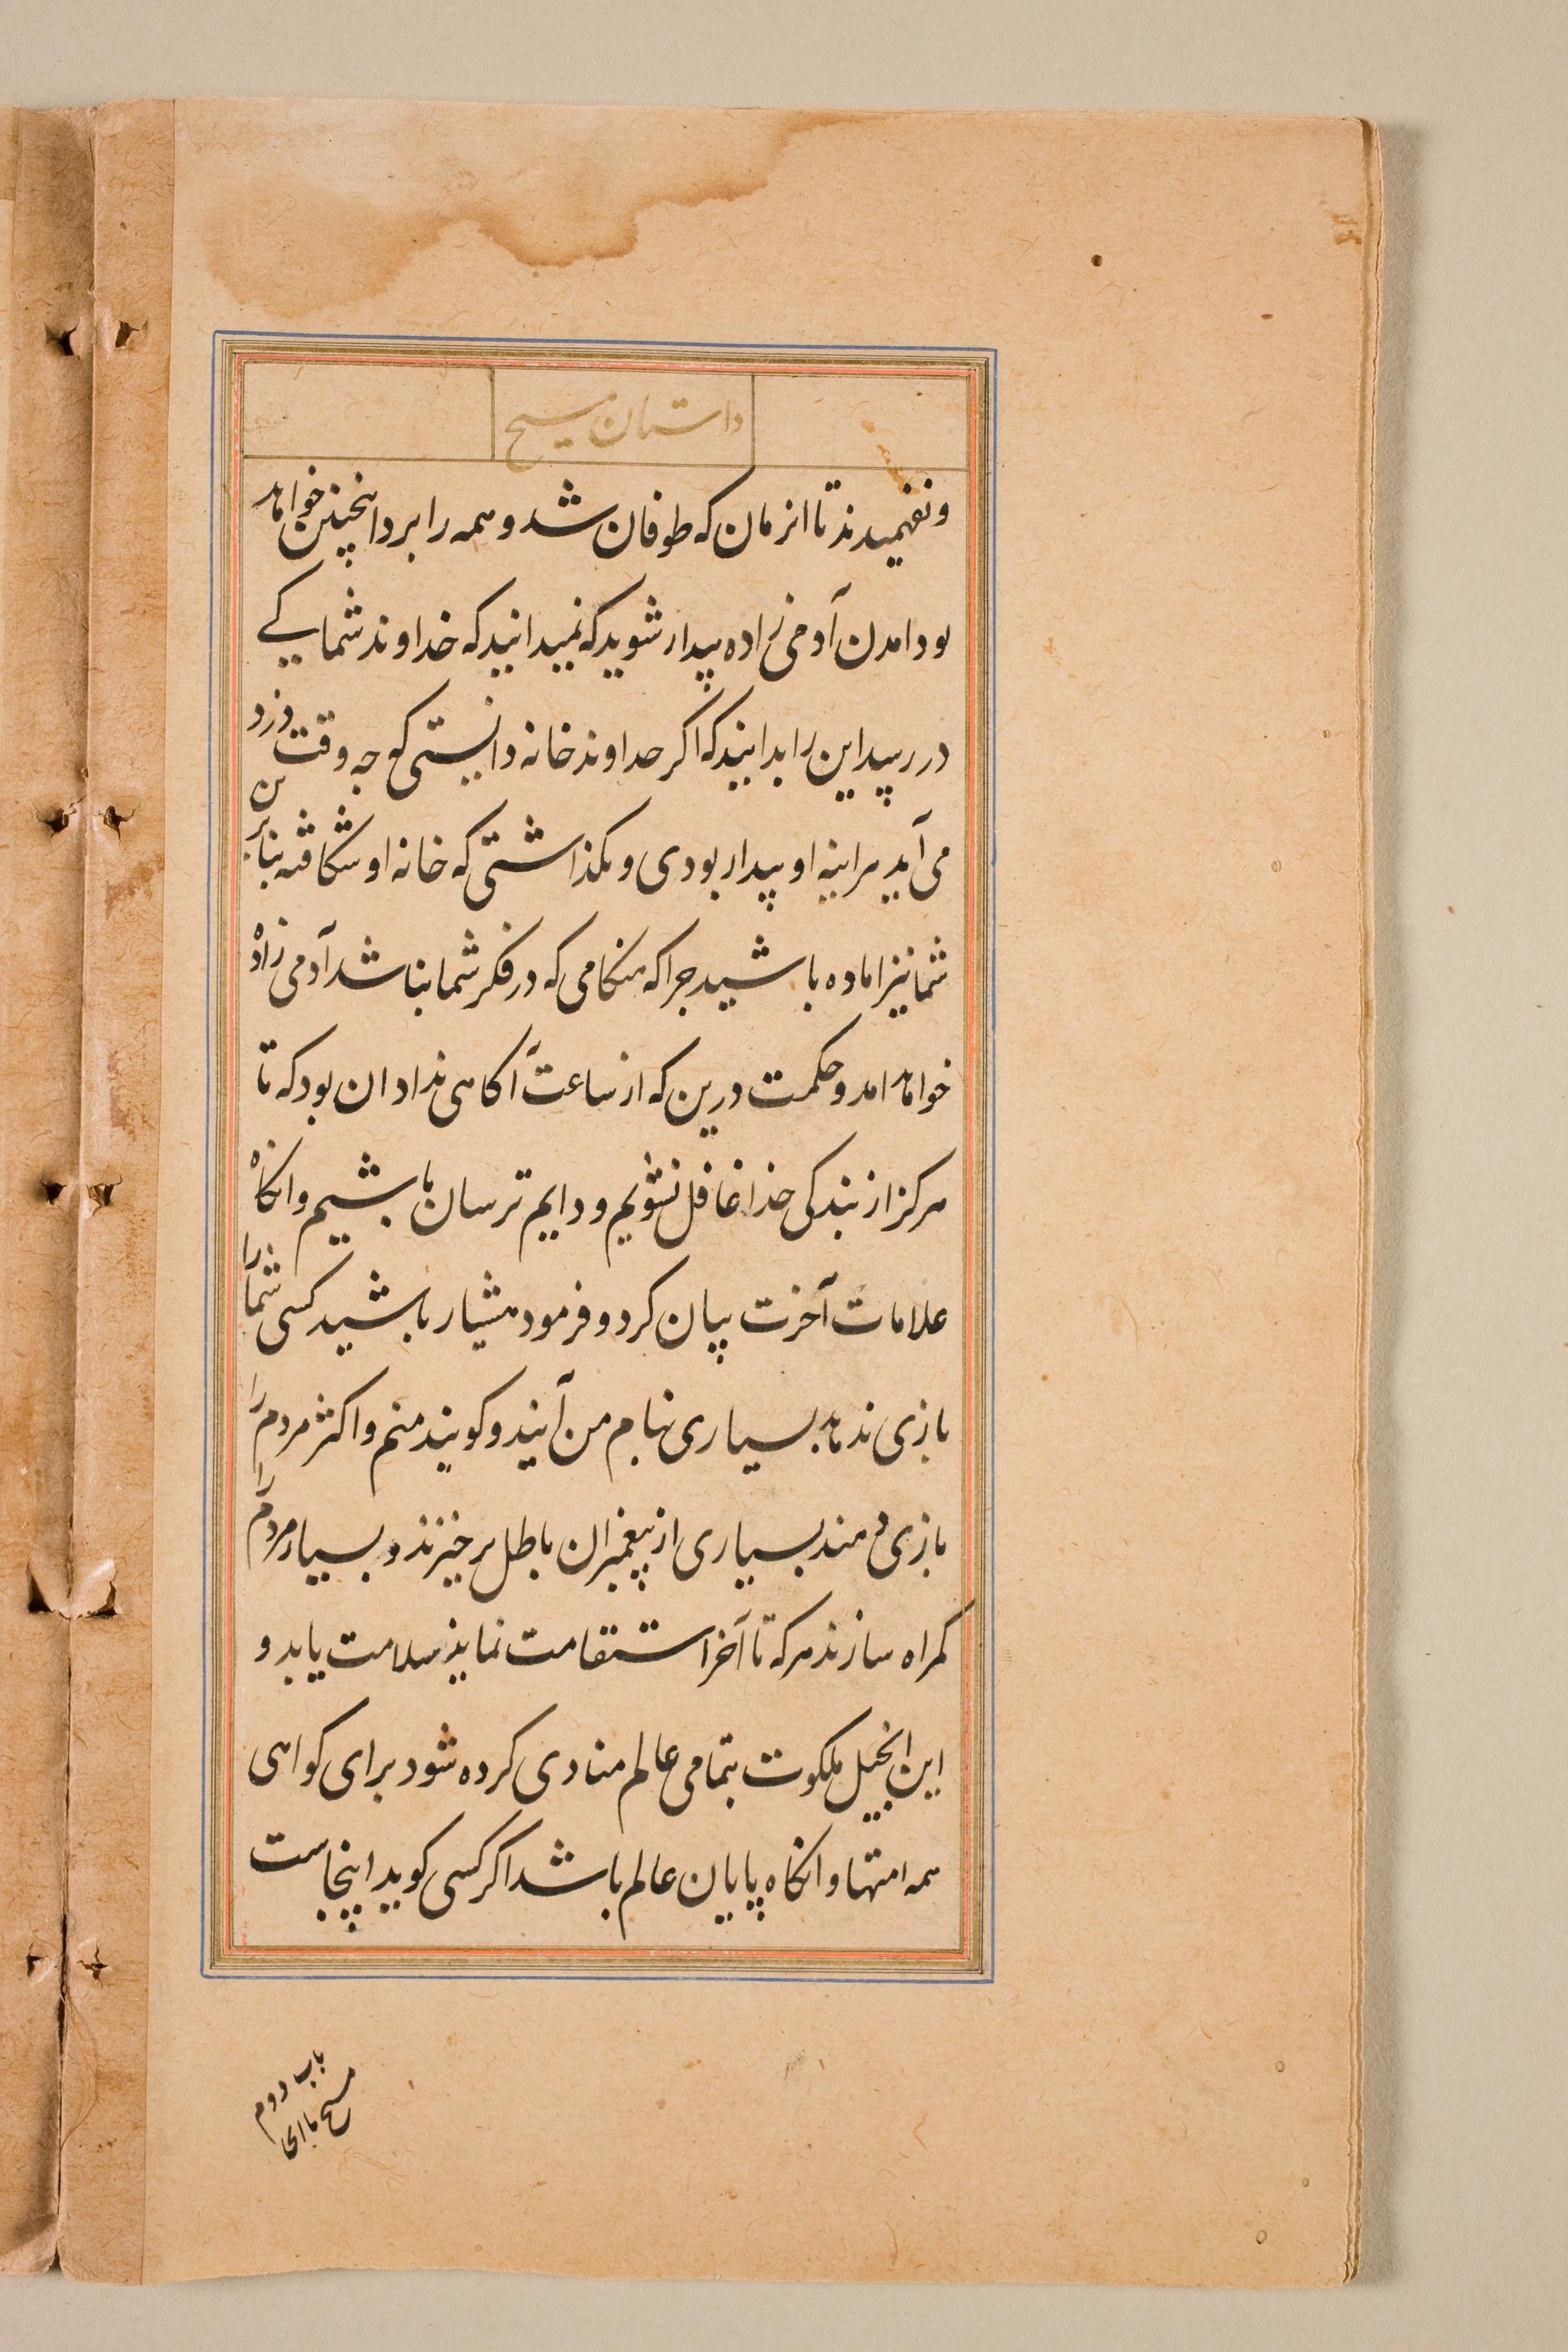 داستان مسیح
و نفهمیدند تا انزمان که طوفان شد و همه را برد انچنین خواهد
بود امدن آدمی زاده بیدار شوید که نمیدانید که خداوند شما کے
در رسد این را بدانید که اکر خداوند خانه دانستی که جه وقت دزد
می آید هراینه او بیدار بودی و نکذاشتی که خانه او شکافته بنابرین
شما نیز اماده باشید جرا که هنکامی که در فکر شما نباشد آدمی زاده
خواهد امد و حکمت درین که از ساعت آکاهی نداد ان بود که تا
هرکز از بندکی خدا غافل نشویم و دایم ترسان باشیم و انکاه
علامات آخرت بیان کرد و فرمود هشیار باشید کسی شما را
بازی ندهد بسیاری بنام من آیند و کویند منم و اکثر مردم را
بازی دهند بسیاری از پیغمبران باطل برخیزند و بسیار مردم را
کمراه سازند هرکه تا آخر استقامت نماید سلامت یابد و
این انجیل ملکوت بتمامی عالم منادی کرده شود برای کواهی
همه امتها و انکاه پایان عالم باشد اکر کسی کوید اینجاست
باب دوم
مسیح